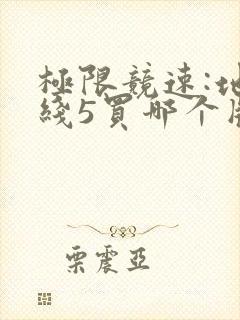 極限競速:地
綫5買哪个版
栗震亞